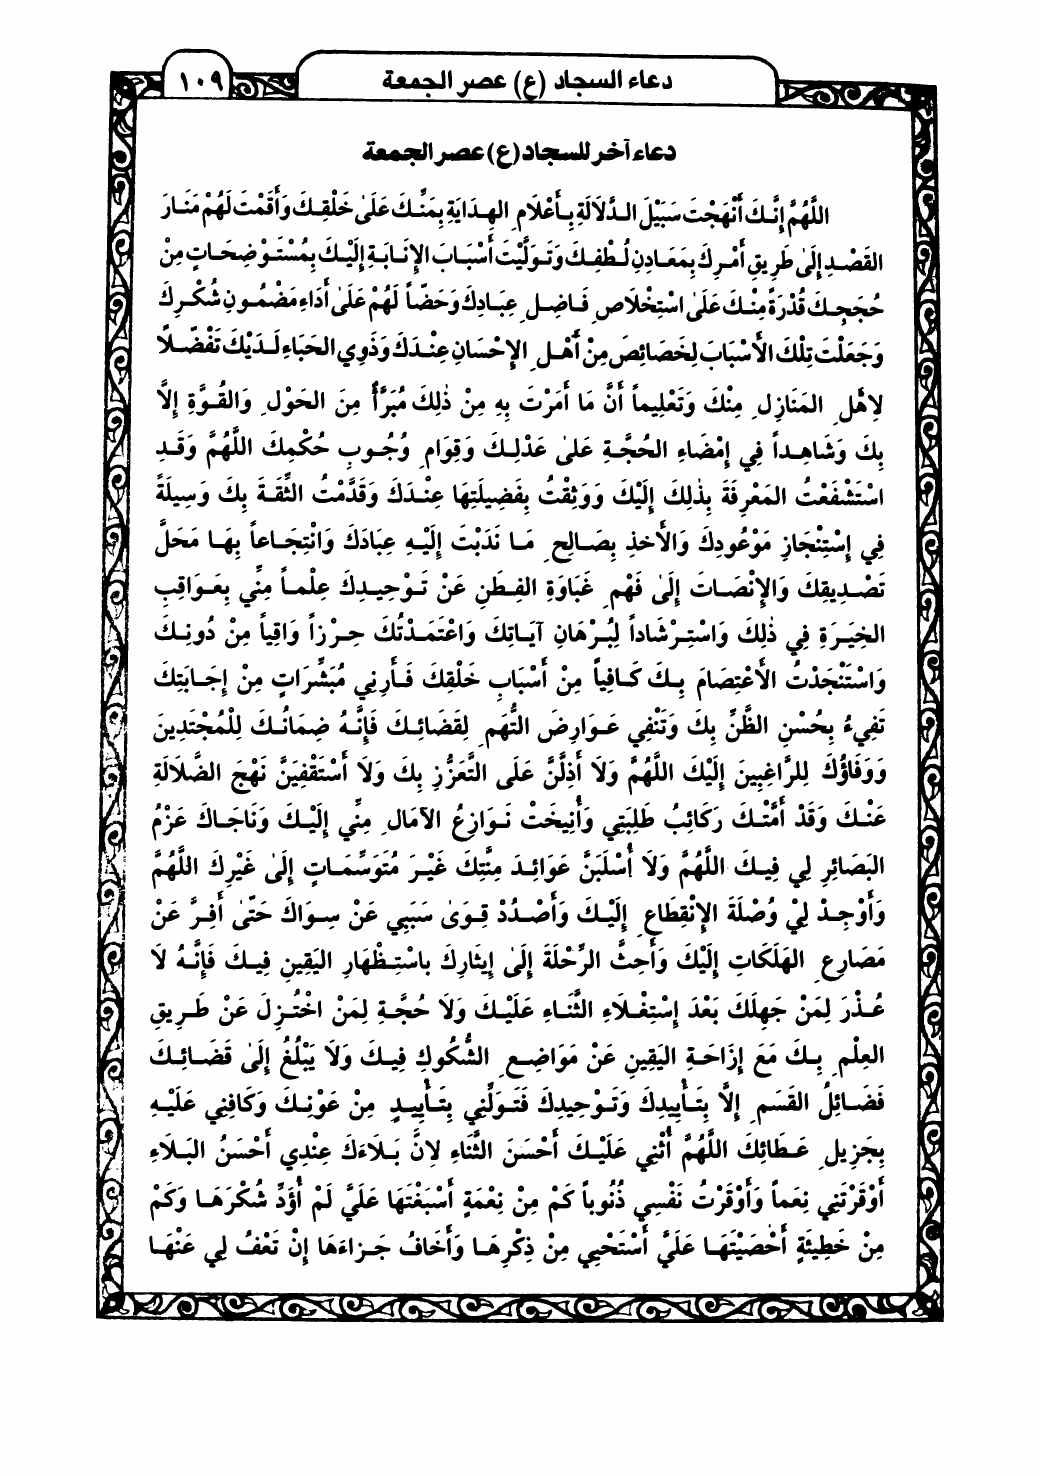 دعاء السجاد (ع) عصر الجمعة
١٠٩
دعاء آخر للسجاد (ع) عصر الجمعة
اللَّهُمَّ إِنَّكَ أَنْهَجْتَ سَبِيْلَ الدَّلاَلَةِ بِأَعْلاَمِ الهِدَايَةِ بِمَنِّكَ عَلَىٰ خَلْقِكَ وَأَقَمْتَ لَهُمْ مَنَارَ
القَصْدِ إِلَىٰ طَرِيقِ أَمْرِكَ بِمَعَادِنِ لُطْفِكَ وَتَوَلَّيْتَ أَسْبَابَ الإِنَابَةِ إِلَيْكَ بِمُسْتَوْضِحَاتٍ مِنْ
حُجَجِكَ قُدْرَةً مِنْكَ عَلَىٰ اسْتِخْلاَصِ فَاضِلِ عِبَادِكَ وَحَضّاً لَهُمْ عَلَىٰ أَدَاءِ مَضْمُونِ شُكْرِكَ
وَجَعَلْتَ تِلْكَ الأَسْبَابَ لِخَصَائِصَ مِنْ أَهْلِ الإِحْسَانِ عِنْدَكَ وَذَوِي الحَبَاءِ لَدَيْكَ تَفْضّلاً
لِاهْلِ المَنَازِلِ مِنْكَ وَتَعْلِيماً أَنَّ مَا أَمَرْتَ بِهِ مِنْ ذٰلِكَ مُبَرَّأُ مِنَ الحَوْلِ وَالقُوَّةِ إِلاَّ
بِكَ وَشَاهِداً فِي إِمْضَاءِ الحُجَّةِ عَلىٰ عَدْلِكَ وَقِوَامِ وُجُوبِ حُكْمِكَ اللَّهُمَّ وَقَدِ
اسْتَشْفَعْتُ المَعْرِفَةَ بِذٰلِكَ إِلَيْكَ وَوَثِقْتُ بِفَضِيلَتِهَا عِنْدَكَ وَقَدَّمْتُ الثِّقَةَ بِكَ وَسِيلَةً
فِي إِسْتِنْجَازِ مَوْعُودِكَ وَالأَخذِ بِصَالِحِ مَا نَدَبْتَ إِلَيْهِ عِبَادَكَ وَانْتِجَاعاً بِهَا مَحَلَّ
تَصْدِيقِكَ وَالإِنْصَاتَ إِلَىٰ فَهْمِ غَبَاوَةِ الفِطَنِ عَنْ تَوْحِيدِكَ عِلْماً مِنِّي بِعَوَاقِبِ
الخِيَرَةِ فِي ذٰلِكَ وَاسْتِرْشَاداً لِبُرْهَانِ آيَاتِكَ وَاعْتَمَدْتُكَ حِرْزاً وَاقِياً مِنْ دُونِكَ
وَاسْتَنْجَدْتُ الأَعْتِصَامَ بِكَ كَافِياً مِنْ أَسْبَابِ خَلْقِكَ فَأَرِنِي مُبَشِّرَاتٍ مِنْ إِجَابَتِكَ
تَفِيءُ بِحُسْنِ الظَّنِّ بِكَ وَتَنْفِي عَوَارِضَ التُّهَمِ لِقَضَائِكَ فَإِنَّهُ ضِمَانُكَ لِلْمُجْتَدِينَ
وَوَفَاؤُكَ لِلرَّاغِبِينَ إِلَيْكَ اللَّهُمَّ وَلاَ أَذِلَّنَّ عَلَى التَّعَزُّزِ بِكَ وَلاَ أَسْتَقْفِيَنَّ نَهْجَ الضَّلاَلَةِ
عَنْكَ وَقَدْ أَمَّتْكَ رَكَائِبُ طَلِبَتِي وَأُنِيخَتْ نَوَازِعُ الآمَالِ مِنِّي إِلَيْكَ وَنَاجَاكَ عَزْمُ
البَصَائِرِ لِي فِيكَ اللَّهُمَّ وَلاَ أُسْلَبَنَّ عَوَائِدَ مِنَّتِكَ غَيْرَ مُتَوَسِّمَاتٍ إِلَىٰ غَيْرِكَ اللَّهُمَّ
وَأَوْجِدْ لِيْ وُصْلَةَ الإِنْقِطَاعِ إِلَيْكَ وَأَصْدُدْ قِوَىٰ سَبَبِي عَنْ سِوَاكَ حَتّىٰ أَفِرَّ عَنْ
مَصَارِعِ الهَلَكَاتِ إِلَيْكَ وَأَحِثَّ الرِّحْلَةَ إِلَىٰ إِيثَارِكَ بِاسْتِظْهَارِ اليَقِينِ فِيكَ فَإِنَّهُ لاَ
عُذْرَ لِمَنْ جَهِلَكَ بَعْدَ إِسْتِغْلاَءِ الثَّنَاءِ عَلَيْكَ وَلاَ حُجَّةِ لِمَنْ اخْتُزِلَ عَنْ طَرِيقِ
العِلْمِ بِكَ مَعَ إِزَاحَةِ اليَقِينِ عَنْ مَوَاضِعِ الشُّكُوكِ فِيكَ وَلاَ يَبْلُغُ إِلَىٰ قَضَائِكَ
فَضَائِلُ القَسَمِ إِلاَّ بِتَأْيِيدِكَ وَتَوْحِيدِكَ فَتَوَلَّنِي بِتَأْيِيدٍ مِنْ عَوْنِكَ وَكَافِنِي عَلَيْهِ
بِجَزِيلِ عَطَائِكَ اللَّهُمَّ أُثْنِي عَلَيْكَ أَحْسَنَ الثَّنَاءِ لِانَّ بَلاَءَكَ عِنْدِي أَحْسَنُ البَلاَءِ
أَوْقَرْتَنِي نِعَماً وَأَوْقَرْتُ نَفْسِي ذُنُوباً كَمْ مِنْ نِعْمَةٍ أَسْبَغْتَهَا عَلَيَّ لَمْ أُؤَدِّ شُكْرَهَا وَكَمْ
مِنْ خَطِيئَةٍ أَحْصَيْتَهَا عَلَيَّ أَسْتَحْيِي مِنْ ذِكْرِهَا وَأَخَافُ جَزاءَهَا إِنْ تَعْفُ لِي عَنْهَا